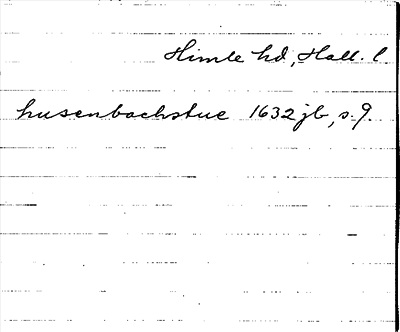 Himle hd, Hall. l.
husenbachstue 1632 jb, s. 9.